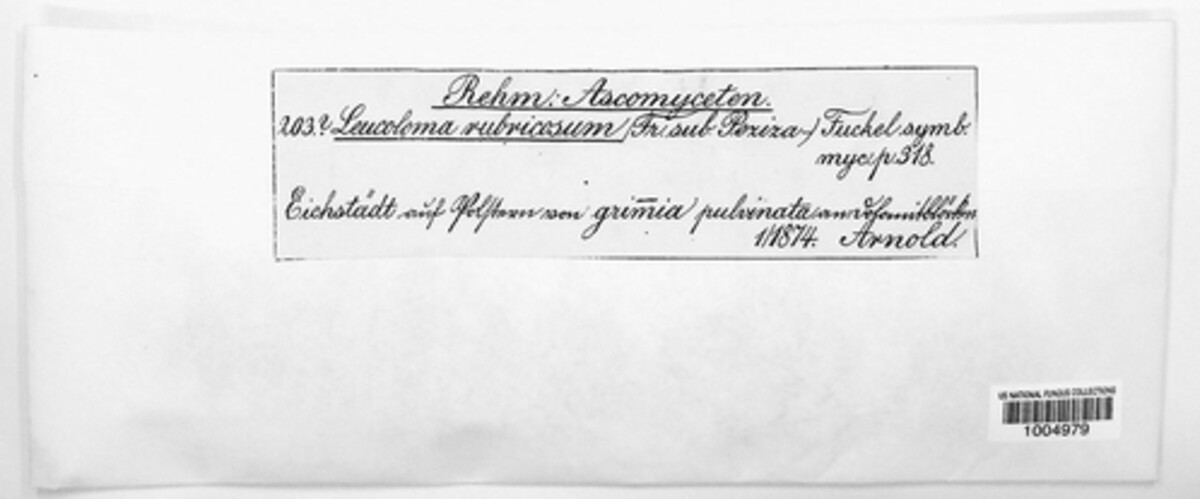 Rehm: Ascomyceten.
203. Leucoloma rubricosum (Fr. sub Peziza) Fuckel symb.
myc. p 318.
Eichstädt auf Polstern von grim̅ia pulvinata an Dolomitblöcken
1/1874. Arnold.
US NATIONAL FUNGUS COLLECTIONS
1004979